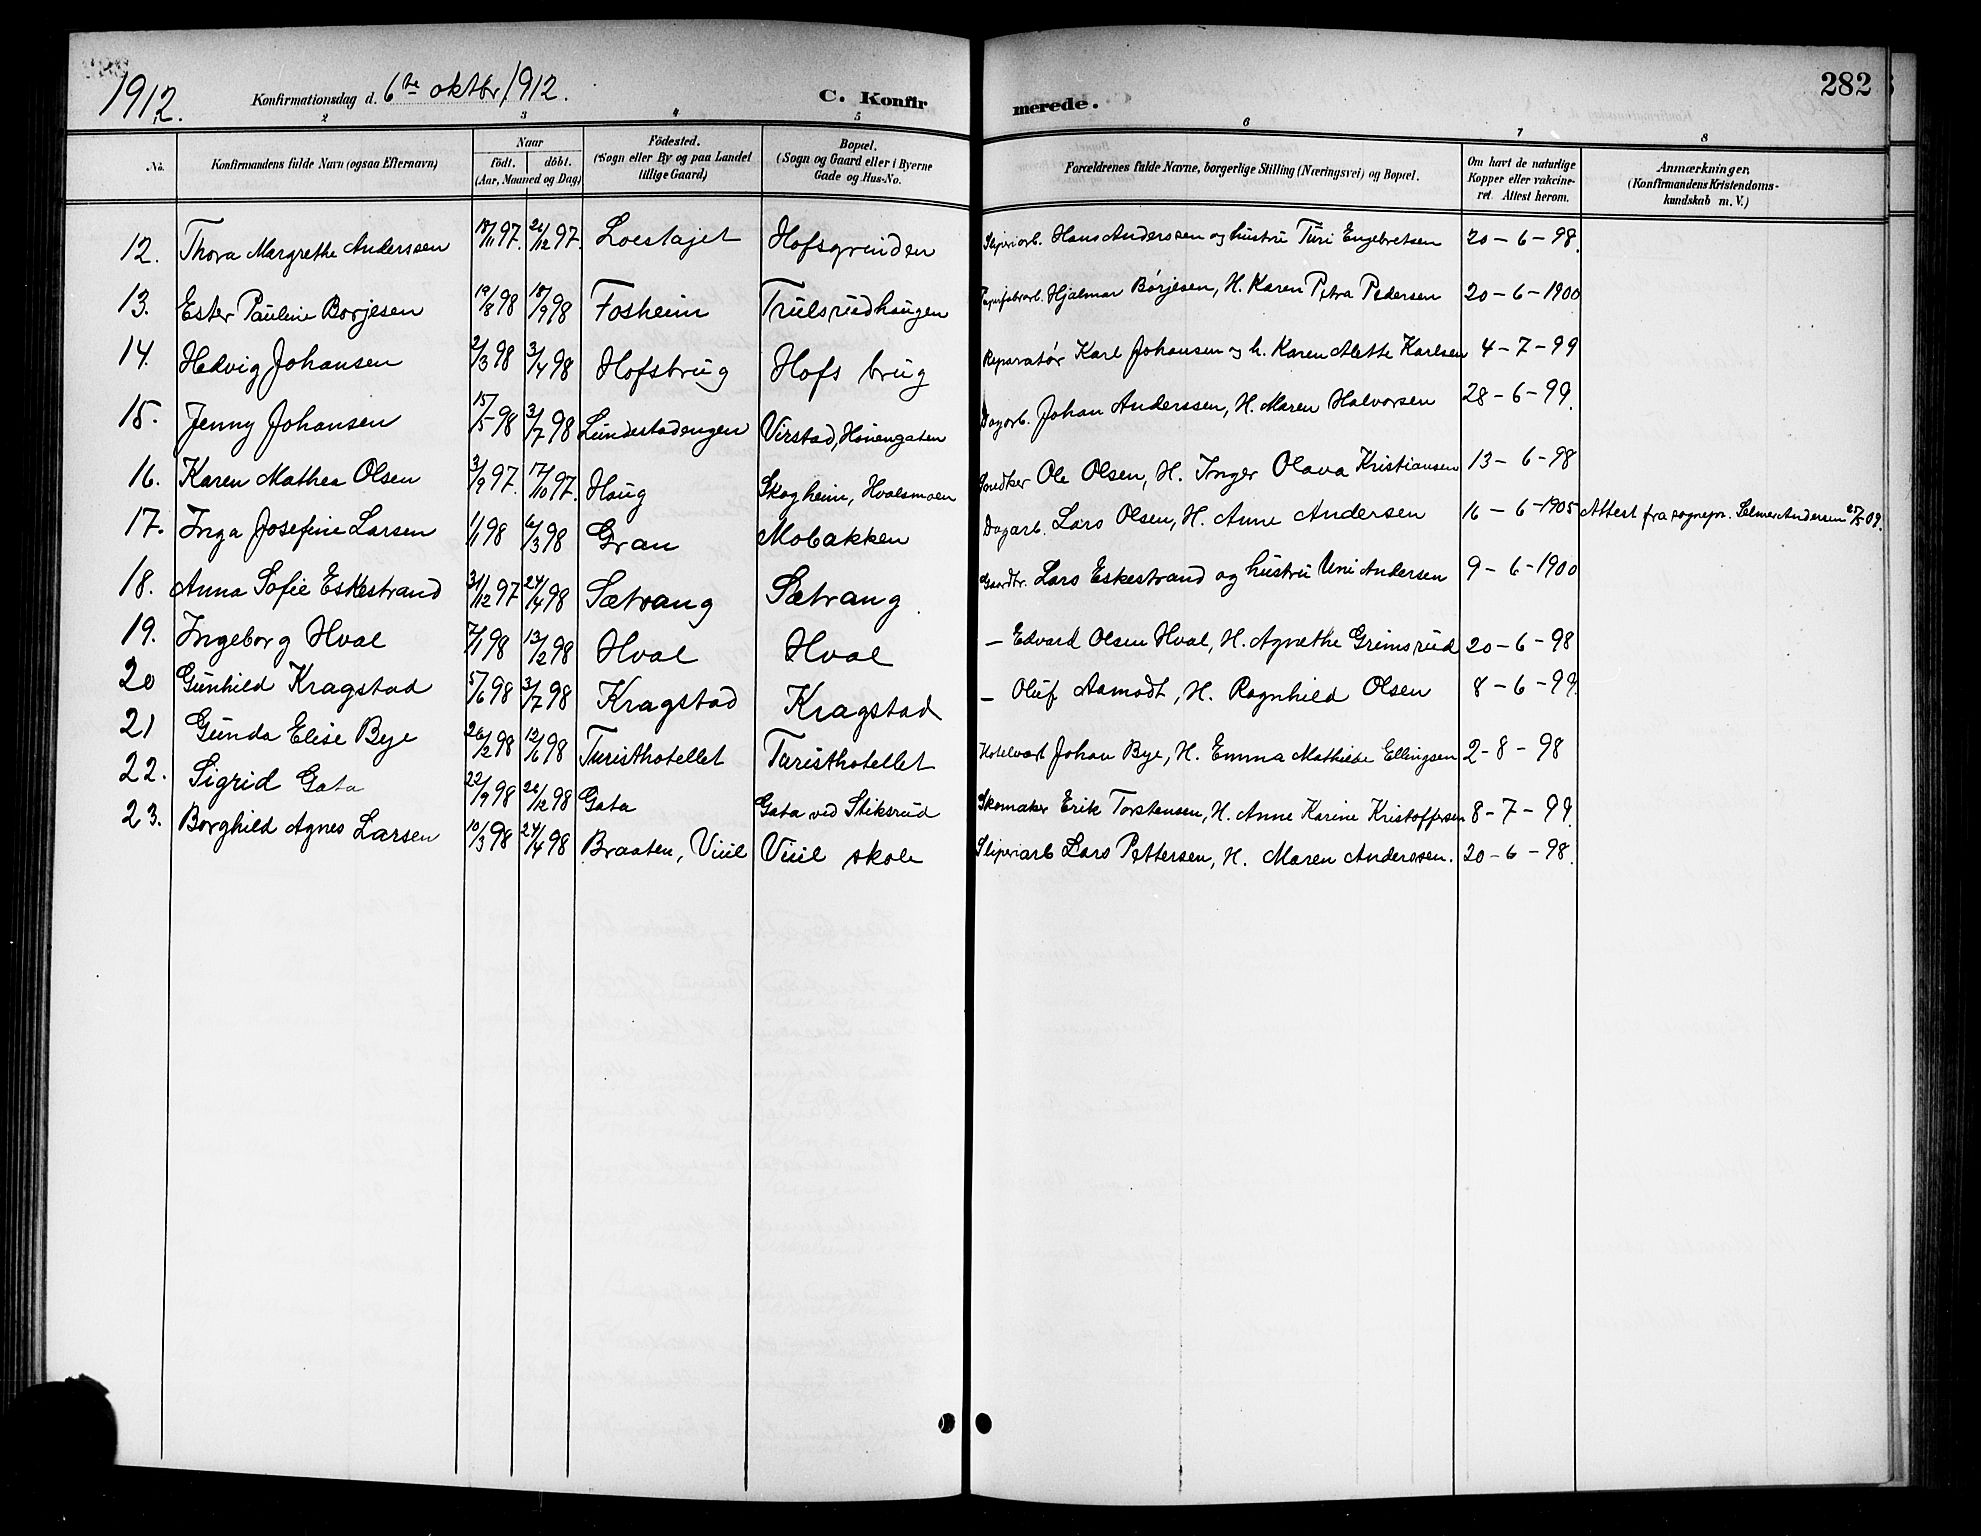 1912. Konfirmationsdag d. 6te oktbr. 1912. C. Konfirmerede. 282
1 2 3 4 5 6 7 8
No. Konfirmandens fulde Navn (ogsaa Efternavn) Naar født. døbt. (Aar, Maaned og Dag) Fødested. (Sogn eller By og paa Landet tillige Gaard) Bopæl. (Sogn og Gaard eller i Byerne Gade og Hus-No. Forældrenes fulde Navne, borgerlige Stilling (Næringsvei) og Bopæl. Om havt de naturlige Kopper eller vakcineret. Attest herom. Anmærkninger, (Konfirmandens Kristendomskundskab m. V.)
12. Thora Margrethe Anderssen 18/11 97. 26/12 97. Loeslajet Hofsgrinden Sliperiarb. Hans Anderssen og hustru Turi Engebretsen 20-6-98.
13. Ester Pauline Borjesen 19/8 98 18/9 98 Fosheim Trulsrudhaugen Papirfabrarb. Hjalmar Børjesen, H. Karen Petra Pedersen 20-6-1900
14. Hedvig Johansen 2/3 98 3/4 98 Hofsbrug Hofs brug Reparatør Karl Johansen og h. Karen Alette Karlsen 4-7-99
15. Jenny Johansen 15/5 98 3/7 98 Lundestadengen Virstad, Hønengaten Dagarb. Johan Anderssen, H. Maren Halvorsen 28-6-99.
16. Karen Mathea Olsen 3/9 97. 17/10 97. Haug Skogheim, Hvalsmoen Snedker Ole Olsen, H. Inger Olava Kristiansen 13-6-98
17. Inga Josefine Larsen 1/1 98 6/3 98 Gran Mobakken Dagarb. Lars Olsen, H. Anne Andersen 16-6-1905 Attest fra sognepr. Selmer Andersen 25/5 09.
18. Anna Sofie Eskestrand 31/12 97 24/4 98 Sætrang Sætrang Gaardbr. Lars Eskestrand og hustru Uni Andersen 9-6-1900
19. Ingeborg Hval 7/1 98 13/2 98 Hval Hval — Edvard Olsen Hval, H. Agnethe Grimsrud 20-6-98
20 Gunhild Kragstad 5/6 98 3/7 98 Kragstad Kragstad — Oluf Aamodt, H. Ragnhild Olsen 8-6-99.
21 Gunda Elise Bye 26/2 98 12/6 98 Turisthotellet Turisthotellet Hotelvært Johan Bye, H. Emma Mathilde Ellingsen 2-8-98
22. Sigrid Gata 22/9 98 26/12 98 Gata Gata ved Stiksrud Skomaker Erik Torstensen, H. Anne Karine Kristoffersen 8-7-99.
23. Borghild Agnes Larsen 10/3 98 24/4 98 Braaten, Viul Viul skole Sliperiarb Lars Pettersen, H. Maren Anderssen. 20-6-98.